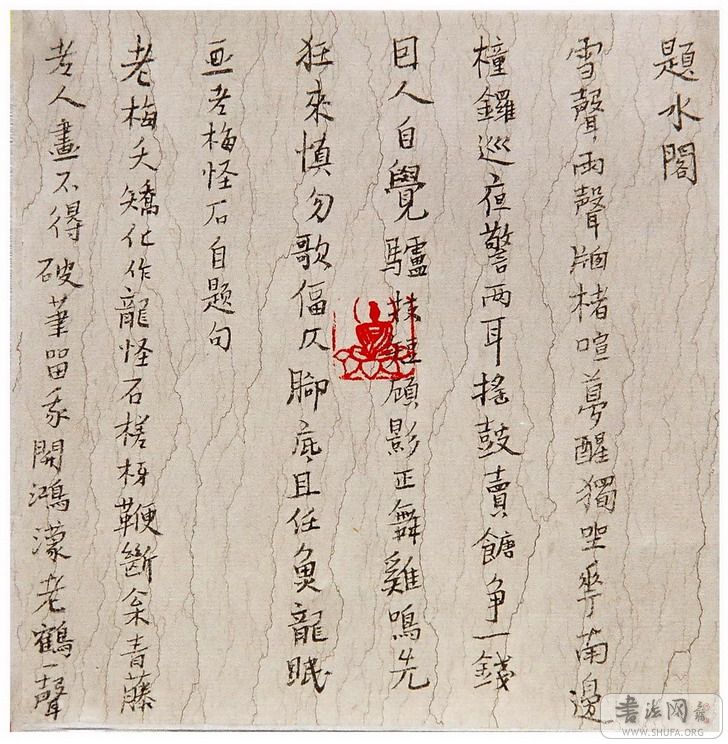 題水閣
雪聲雨聲牖楮喧夢醒獨坐邊
橦鑼巡夜警兩耳搖鼓賣餹爭一錢
因人自覺驢技短顧影正舞雞鳴先
狂來慎勿歌偪仄腳底且任魚龍眠
画老梅怪石自題句
老梅夭矯化作龍怪石槎枒鞭斷枀青藤
老人畫不得破筆留我開鴻濛老鶴一聲
书法网
WWW.SHUFA.ORG